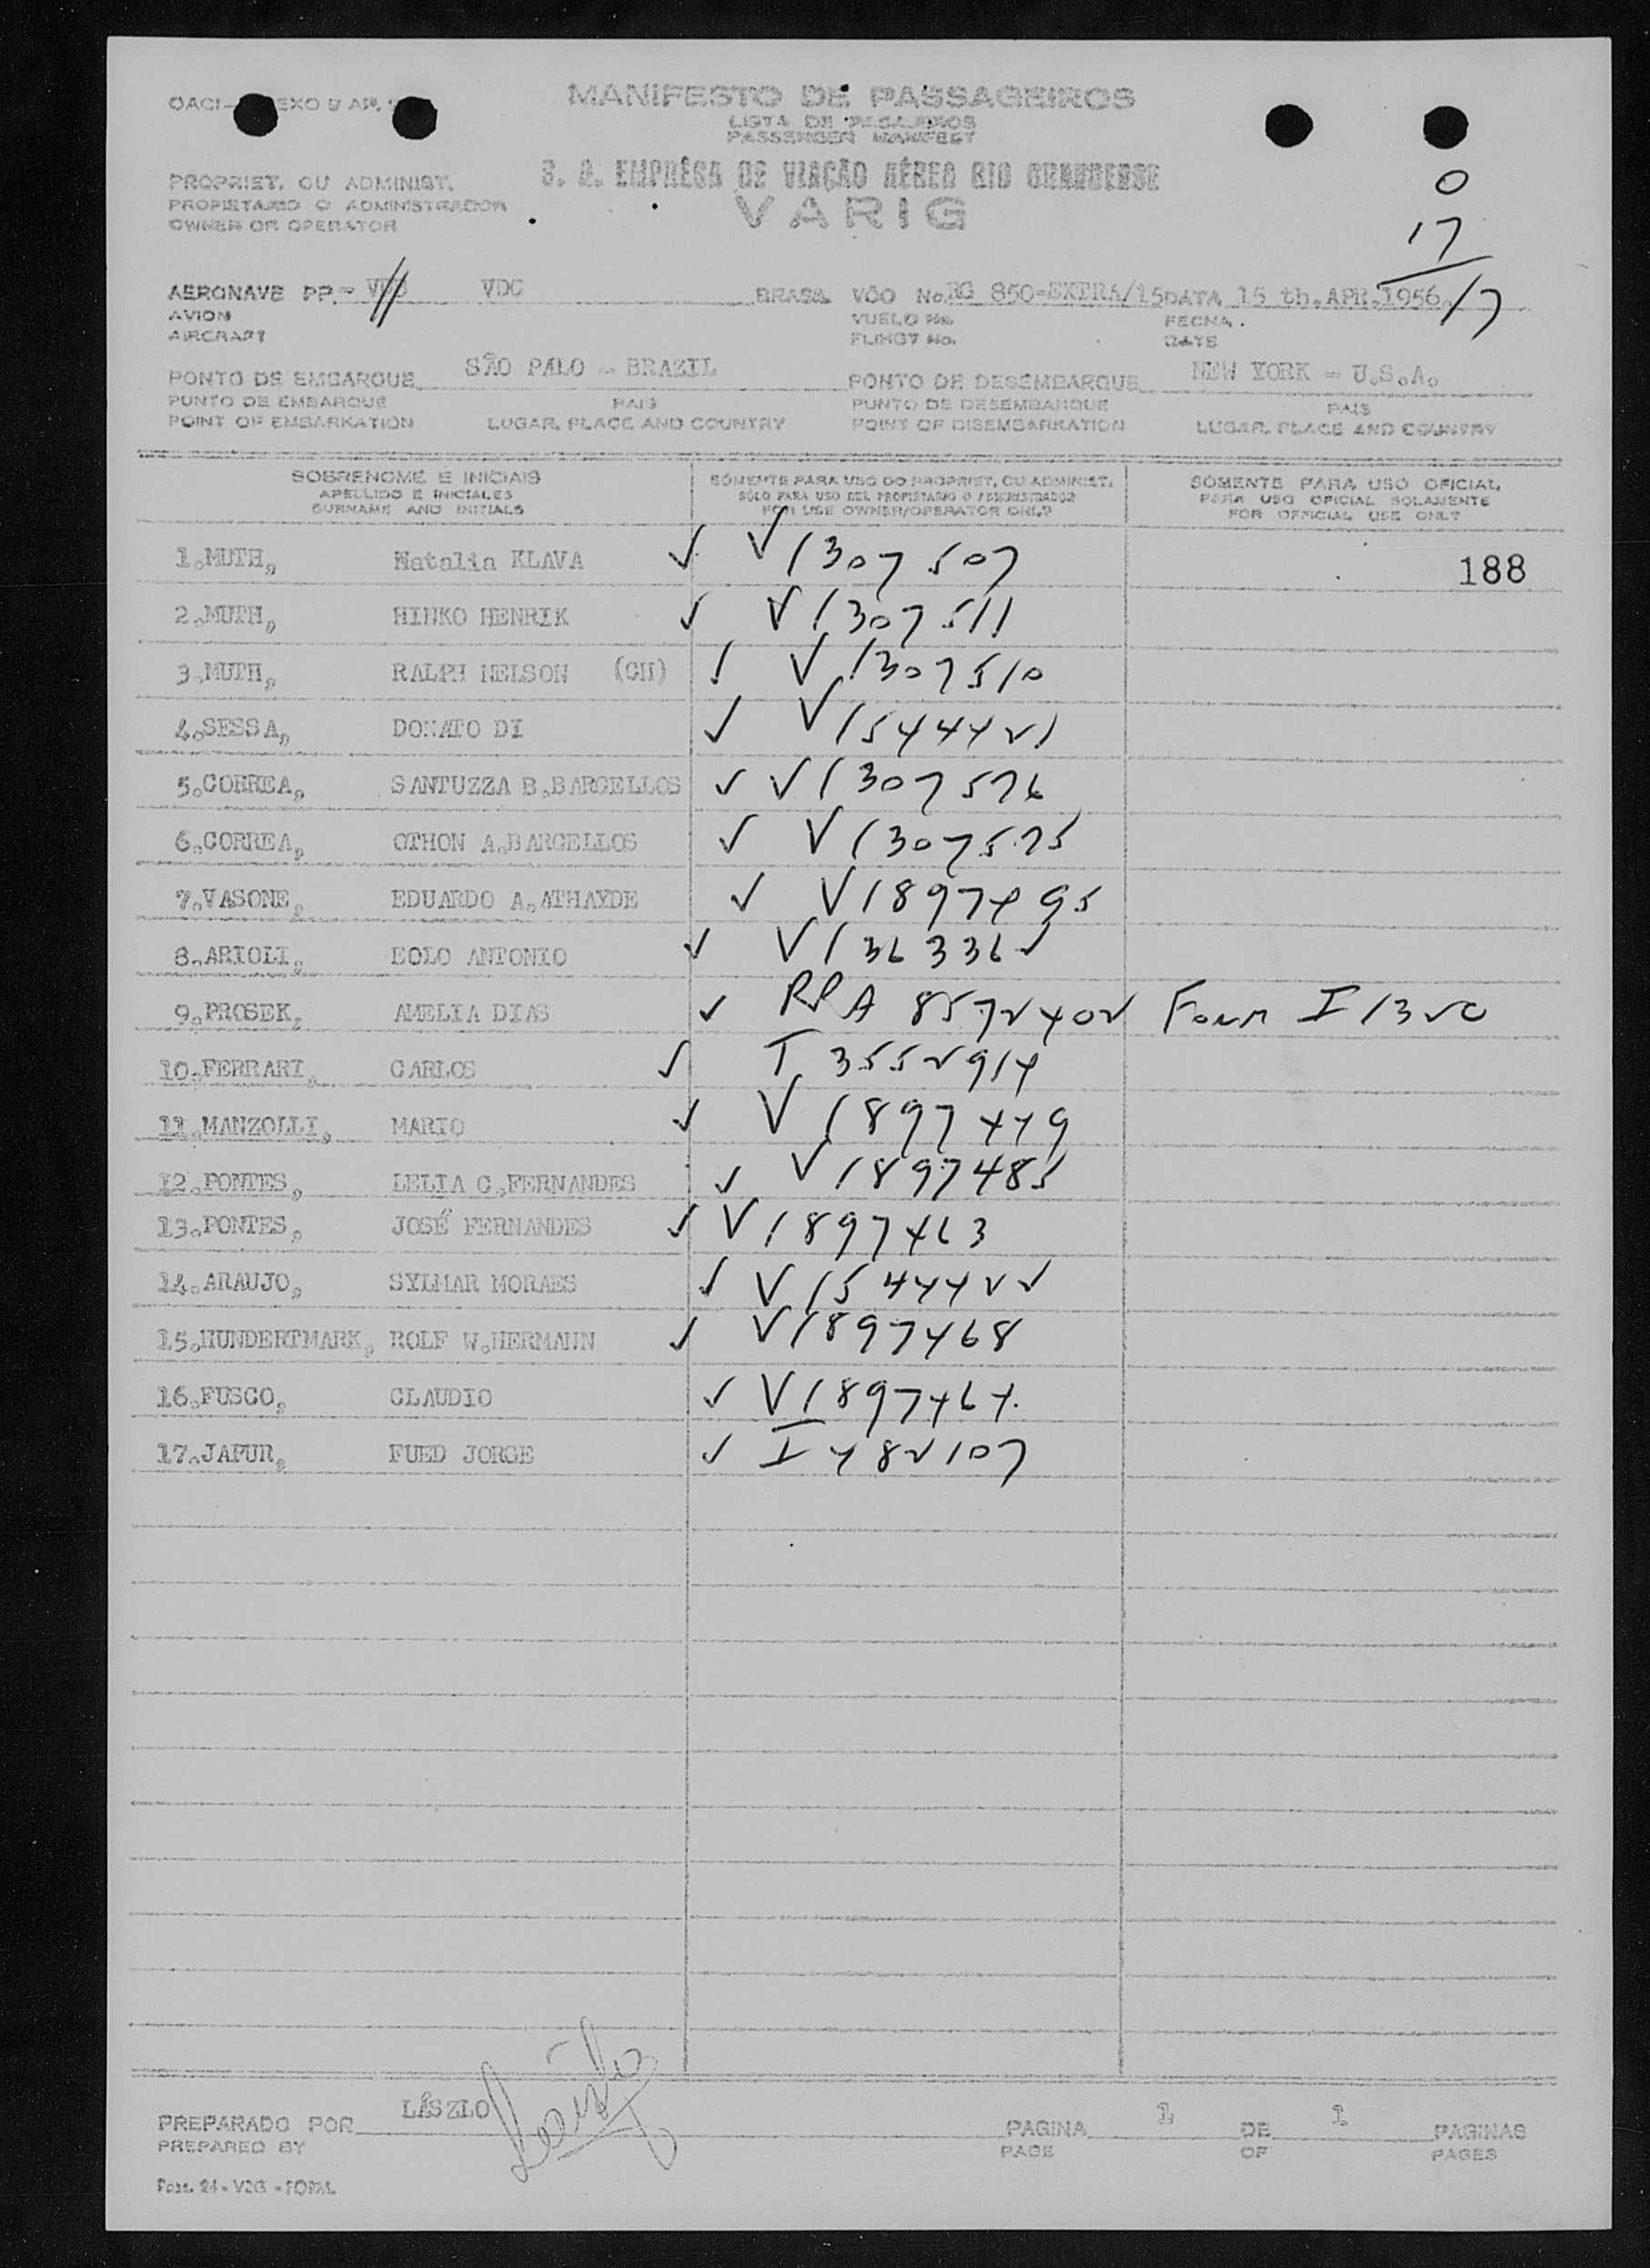 OACI- EXO 9 AP.
MANIFESTO DE PASSAGEIROS
LISTA DE PASAJEROS
PASSENGER MANIFEST
S. A. EMPRÊSA DE VIAÇÃO AÉREA RIO GRANDENSE
VARIG
PROPRIET. OU ADMINIST.
PROPIETARIO O ADMINISTRADOR
OWNER OR OPERATOR
0
17
17
AERONAVE PP- VDC BRASIL VÔO No. RG 850-EXTRA/15 DATA 15 th.APR.1956.
AVION VUELO No. FECHA.
AIRCRAFT FLIHGT No. DATE
PONTO DE EMBARQUE SÃO PALO - BRAZIL PONTO DE DESEMBARQUE NEW YORK - U.S.A.
PUNTO DE EMBARQUE PAIS PUNTO DE DESEMBARQUE PAIS
POINT OF EMBARKATION LUGAR, PLACE AND COUNTRY POINT OF DISEMBARKATION LUGAR, PLACE AND COUNTRY
SOBRENOME E INICIAIS SÓMENTE PARA USO DO PROPRIET, OU ADMINIST. SOMENTE PARA USO OFICIAL
APELLIDO E INICIALES SÓLO PARA USO DEL PROPIETARIO O ADMINISTRADOR PARA USO OFICIAL SOLAMENTE
SURNAME AND INITIALS FOR USE OWNER/OPERATOR ONLY FOR OFFICIAL USE ONLY
1.MUTH, Natalia KLAVA ✓ V1307507 188
2.MUTH, HINKO HENRIK ✓ V1307511
3.MUTH, RALPH NELSON (CH) ✓ V1307510
4.SESSA, DONATO DI ✓ V1544421
5.CORREA, SANTUZZA B.BARCELLOS ✓ V1307576
6.CORREA, OTHON A.BARCELLOS ✓ V1307575
7.VASONE, EDUARDO A.ATHAYDE ✓ V1897495
8.ARIOLI, EOLO ANTONIO ✓ V1363362
9.PROSEK, AMELIA DIAS ✓ RPA 8572402 Form I 1320
10.FERRARI, CARLOS ✓ T 3552914
11.MANZOLLI, MARIO ✓ V1897449
12.PONTES, LELIA C.FERNANDES ✓ V1897485
13.PONTES, JOSÉ FERNANDES ✓ V1897463
14.ARAUJO, SYLMAR MORAES ✓ V1544422
15.HUNDERTMARK, ROLF W.HERMANN ✓ V1897468
16.FUSCO, CLAUDIO ✓ V1897464
17.JAPUR, FUED JORGE ✓ I 482107
PREPARADO POR LÁSZLO PAGINA 1 DE 1 PAGINAS
PREPARED BY PAGE OF PAGES